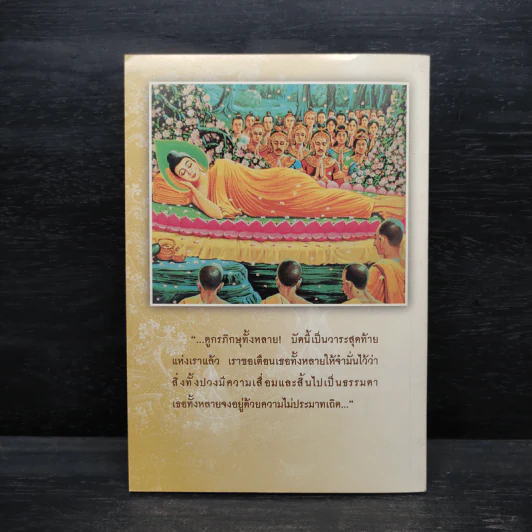 "...ดูกรภิกษุทั้งหลาย! บัดนี้เป็นวาระสุดท้าย
แห่งเราแล้ว เราขอเตือนเธอทั้งหลายให้จำมั่นไว้ว่า
สิ่งทั้งปวงมีความเสื่อมและสิ้นไปเป็นธรรมดา
เธอทั้งหลายจงอยู่ด้วยความไม่ประมาทเถิด..."